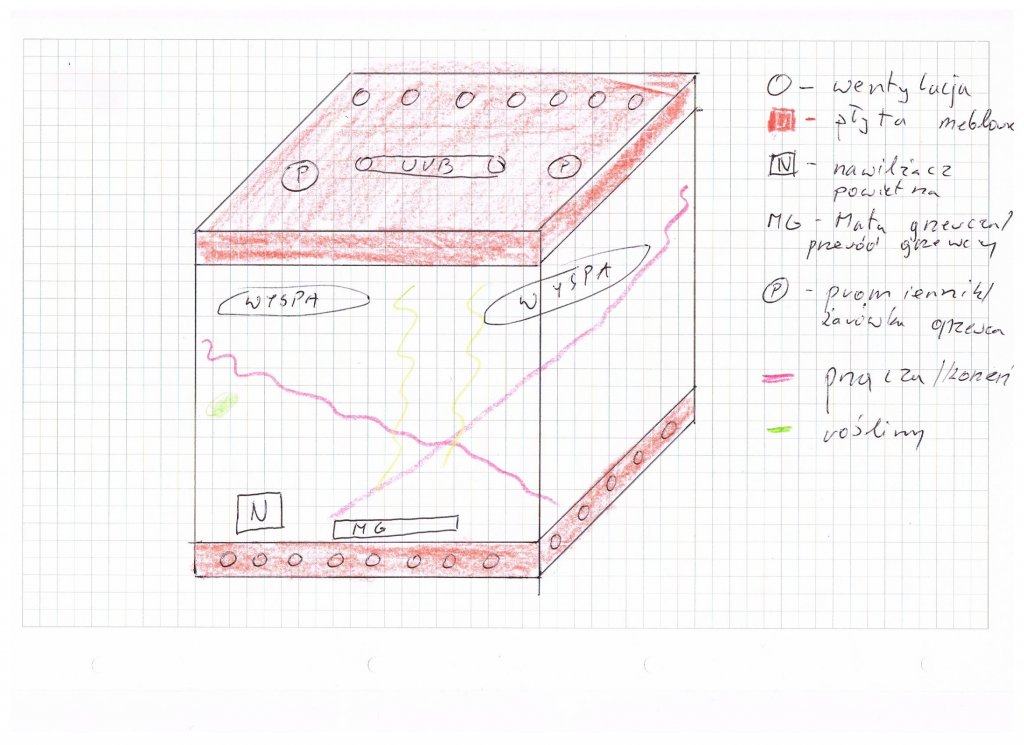 UVB
P
P
WYSPA
WYSPA
N
MG
O - wentylacja
- płyta meblowa
N - nawilżacz
powietrza
MG - Mata grzewcza/
przewód grzewczy
P - promiennik/
żarówka grzewcza
- pnącza/korzeń
- rośliny